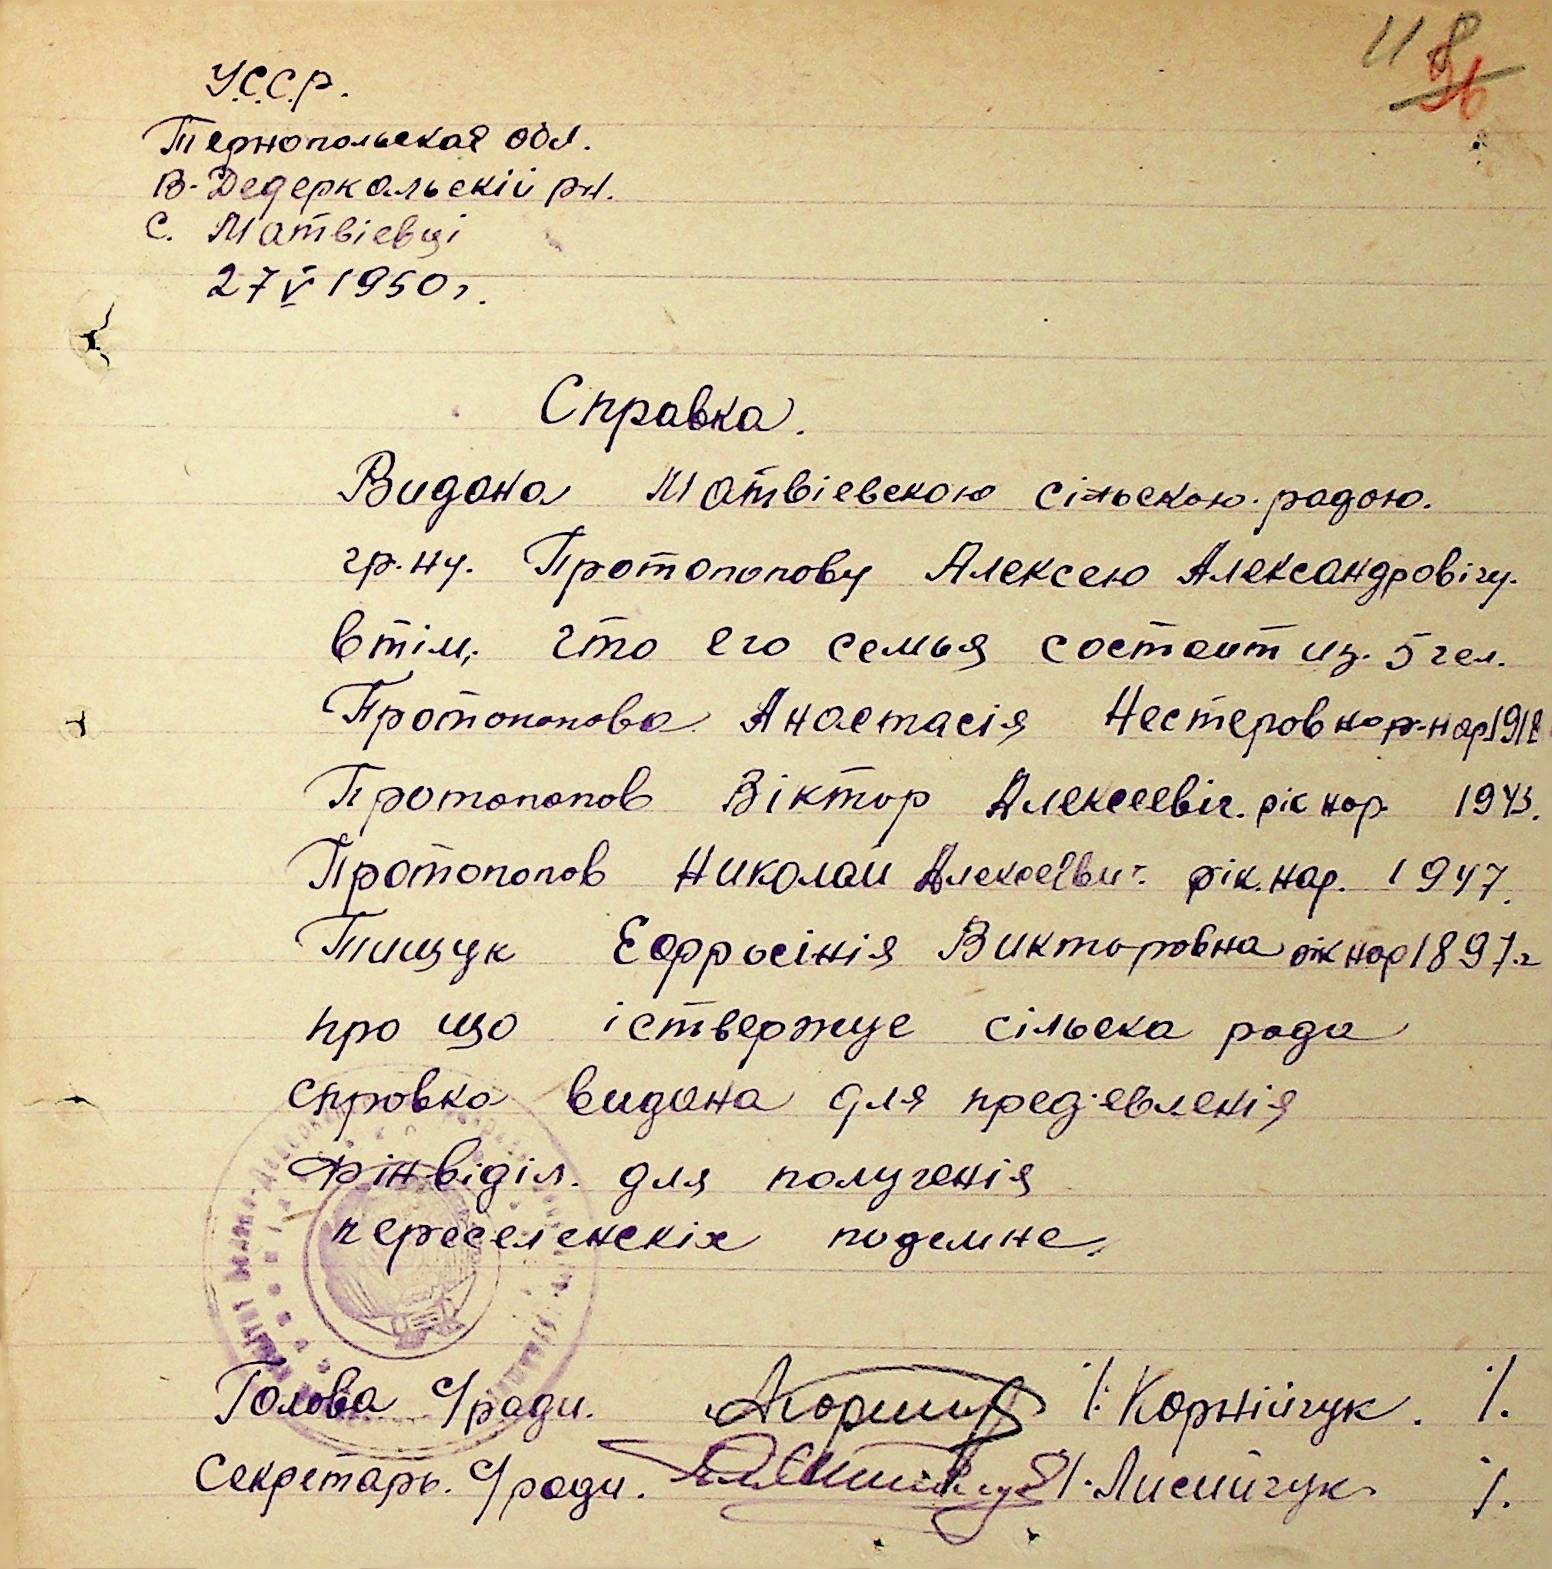 118
96
У.С.С.Р.
Тернопольская обл.
В-Дедеркальскій рн.
с. Матвієвці
27 V 1950 г.
Справка.
Видана Матвієвською сільською радою.
гр.ну. Протопопову Алексею Александровічу.
втім, что его семья состоит из. 5 чел.
Протопопова Анастасія Нестеровна р-нар 1912
Протопопов Віктор Алексеевіч. рік нар 1943.
Протопопов Николай Алексеевич. рік. нар. 1947.
Тищук Ефросінія Викторовна рік нар 1897.г
про що іствержує сільська рада
справка видана для пред'евленія
фінвіділ. для полученія
переселенскіх подемне.
Голова с/ради. /: Корнійчук. /.
Секретарь. с/ради. /. Лисийчук. /.